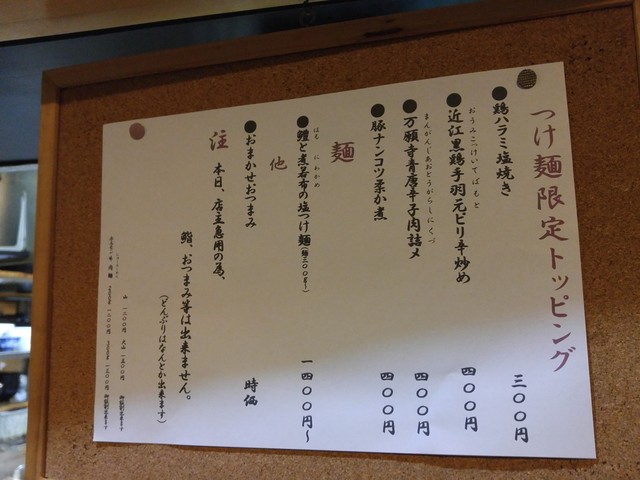 つけ麺限定トッピング
●鶏ハラミ塩焼き 三〇〇円
おうみこっけいてばもと
●近江黒鶏手羽元ピリ辛炒め 四〇〇円
まんがんじあおとうがらしにくづ
●万願寺青唐辛子肉詰メ 四〇〇円
●豚ナンコツ柔か煮 四〇〇円
麺
はも にわかめ
●鱧と煮若布の塩つけ麺(麺三〇〇g〜) 一四〇〇円〜
他
●おまかせおつまみ 時価
注
本日、店主急用の為、
鮨、おつまみ等は出来ません。
(どんぶりはなんとか出来ます)